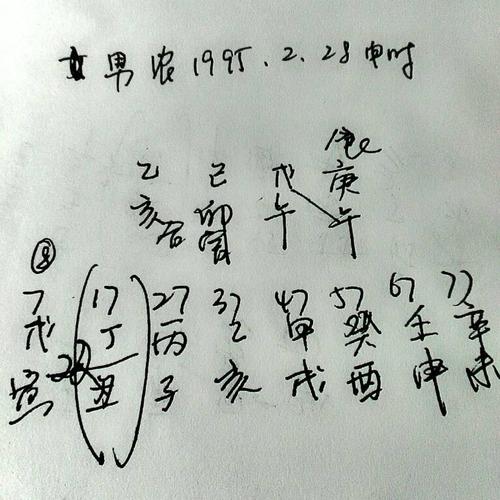 男农1995.2.28申时
乙 己 戊 庚
亥 卯 午 午
合
⑧
7 17 27 37 47 57 67 77
戊 丁 丙 乙 甲 癸 壬 辛
寅 丑 子 亥 戌 酉 申 未